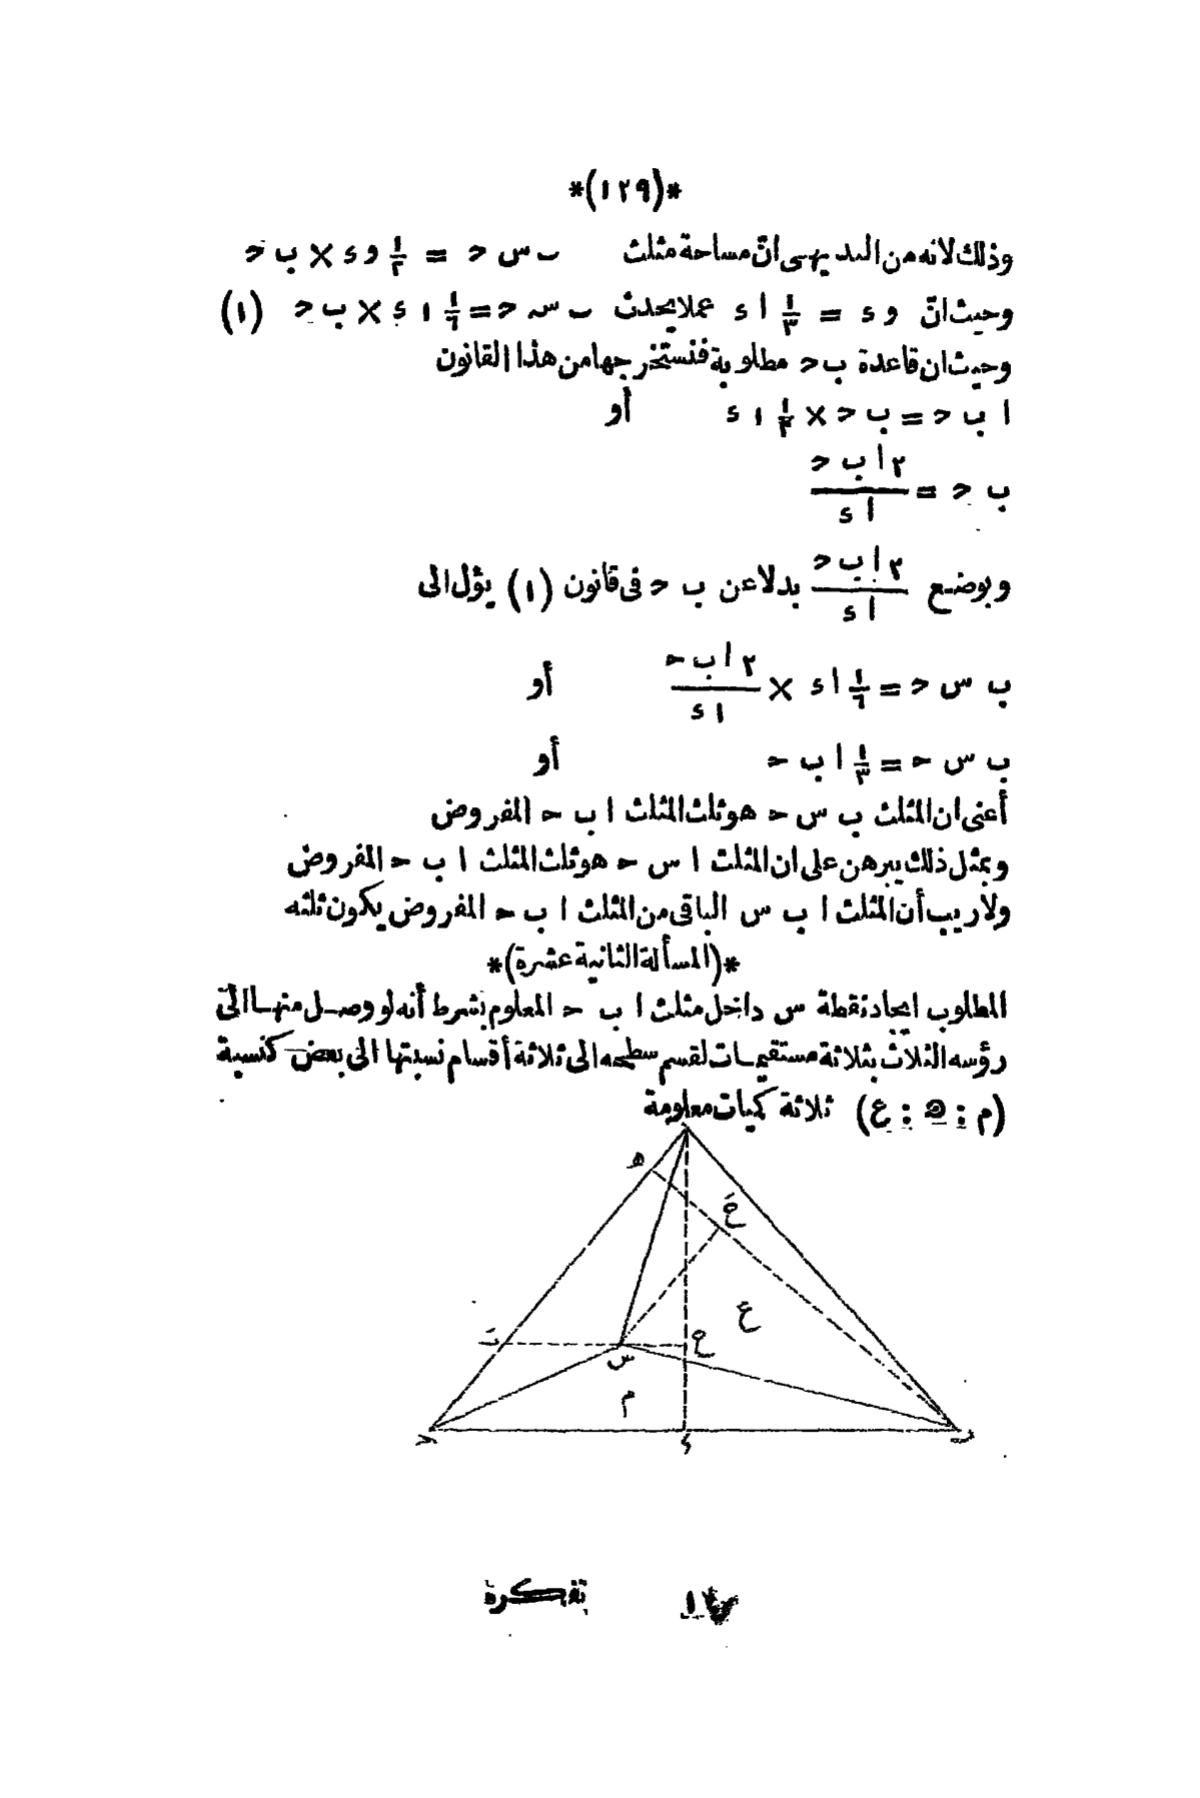 *(١٢٩)*
وذلك لانه من البديهى انّ مساحة مثلث ب س ح = ١/٢ و ء × ب ح
وحيث انّ و ء = ١/٣ ا ء عملا يحدث ب س ح = ١/٦ ا ء × ب ح (١)
وحيث ان قاعدة ب ح مطلوبة فنستخرجها من هذا القانون
ا ب ح = ب ح × ١/٢ ا ء أو
ب ح = ٢ ا ب ح / ا ء
وبوضع ٢ ا ب ح / ا ء بدلا عن ب ح فى قانون (١) يؤل الى
ب س ح = ١/٦ ا ء × ٢ ا ب ح / ا ء أو
ب س ح = ١/٣ ا ب ح أو
أعنى ان المثلث ب س ح هو ثلث المثلث ا ب ح المفروض
وبمثل ذلك يبرهن على ان المثلث ا س ح هو ثلث المثلث ا ب ح المفروض
ولا ريب أن المثلث ا ب س الباقى من المثلث ا ب ح المفروض يكون ثلثه
*(المسألة الثانية عشرة)*
المطلوب ايجاد نقطة س داخل مثلث ا ب ح المعلوم بشرط أنه لو وصل منها الى
رؤسه الثلاث بثلاثة مستقيمات لقسم سطحه الى ثلاثة أقسام نسبتها الى بعض كنسبة
(م : ه : ع) ثلاثة كميات معلومة
ه
ع
ع
س
م
ح
ء
ب
١٧ تذكرة